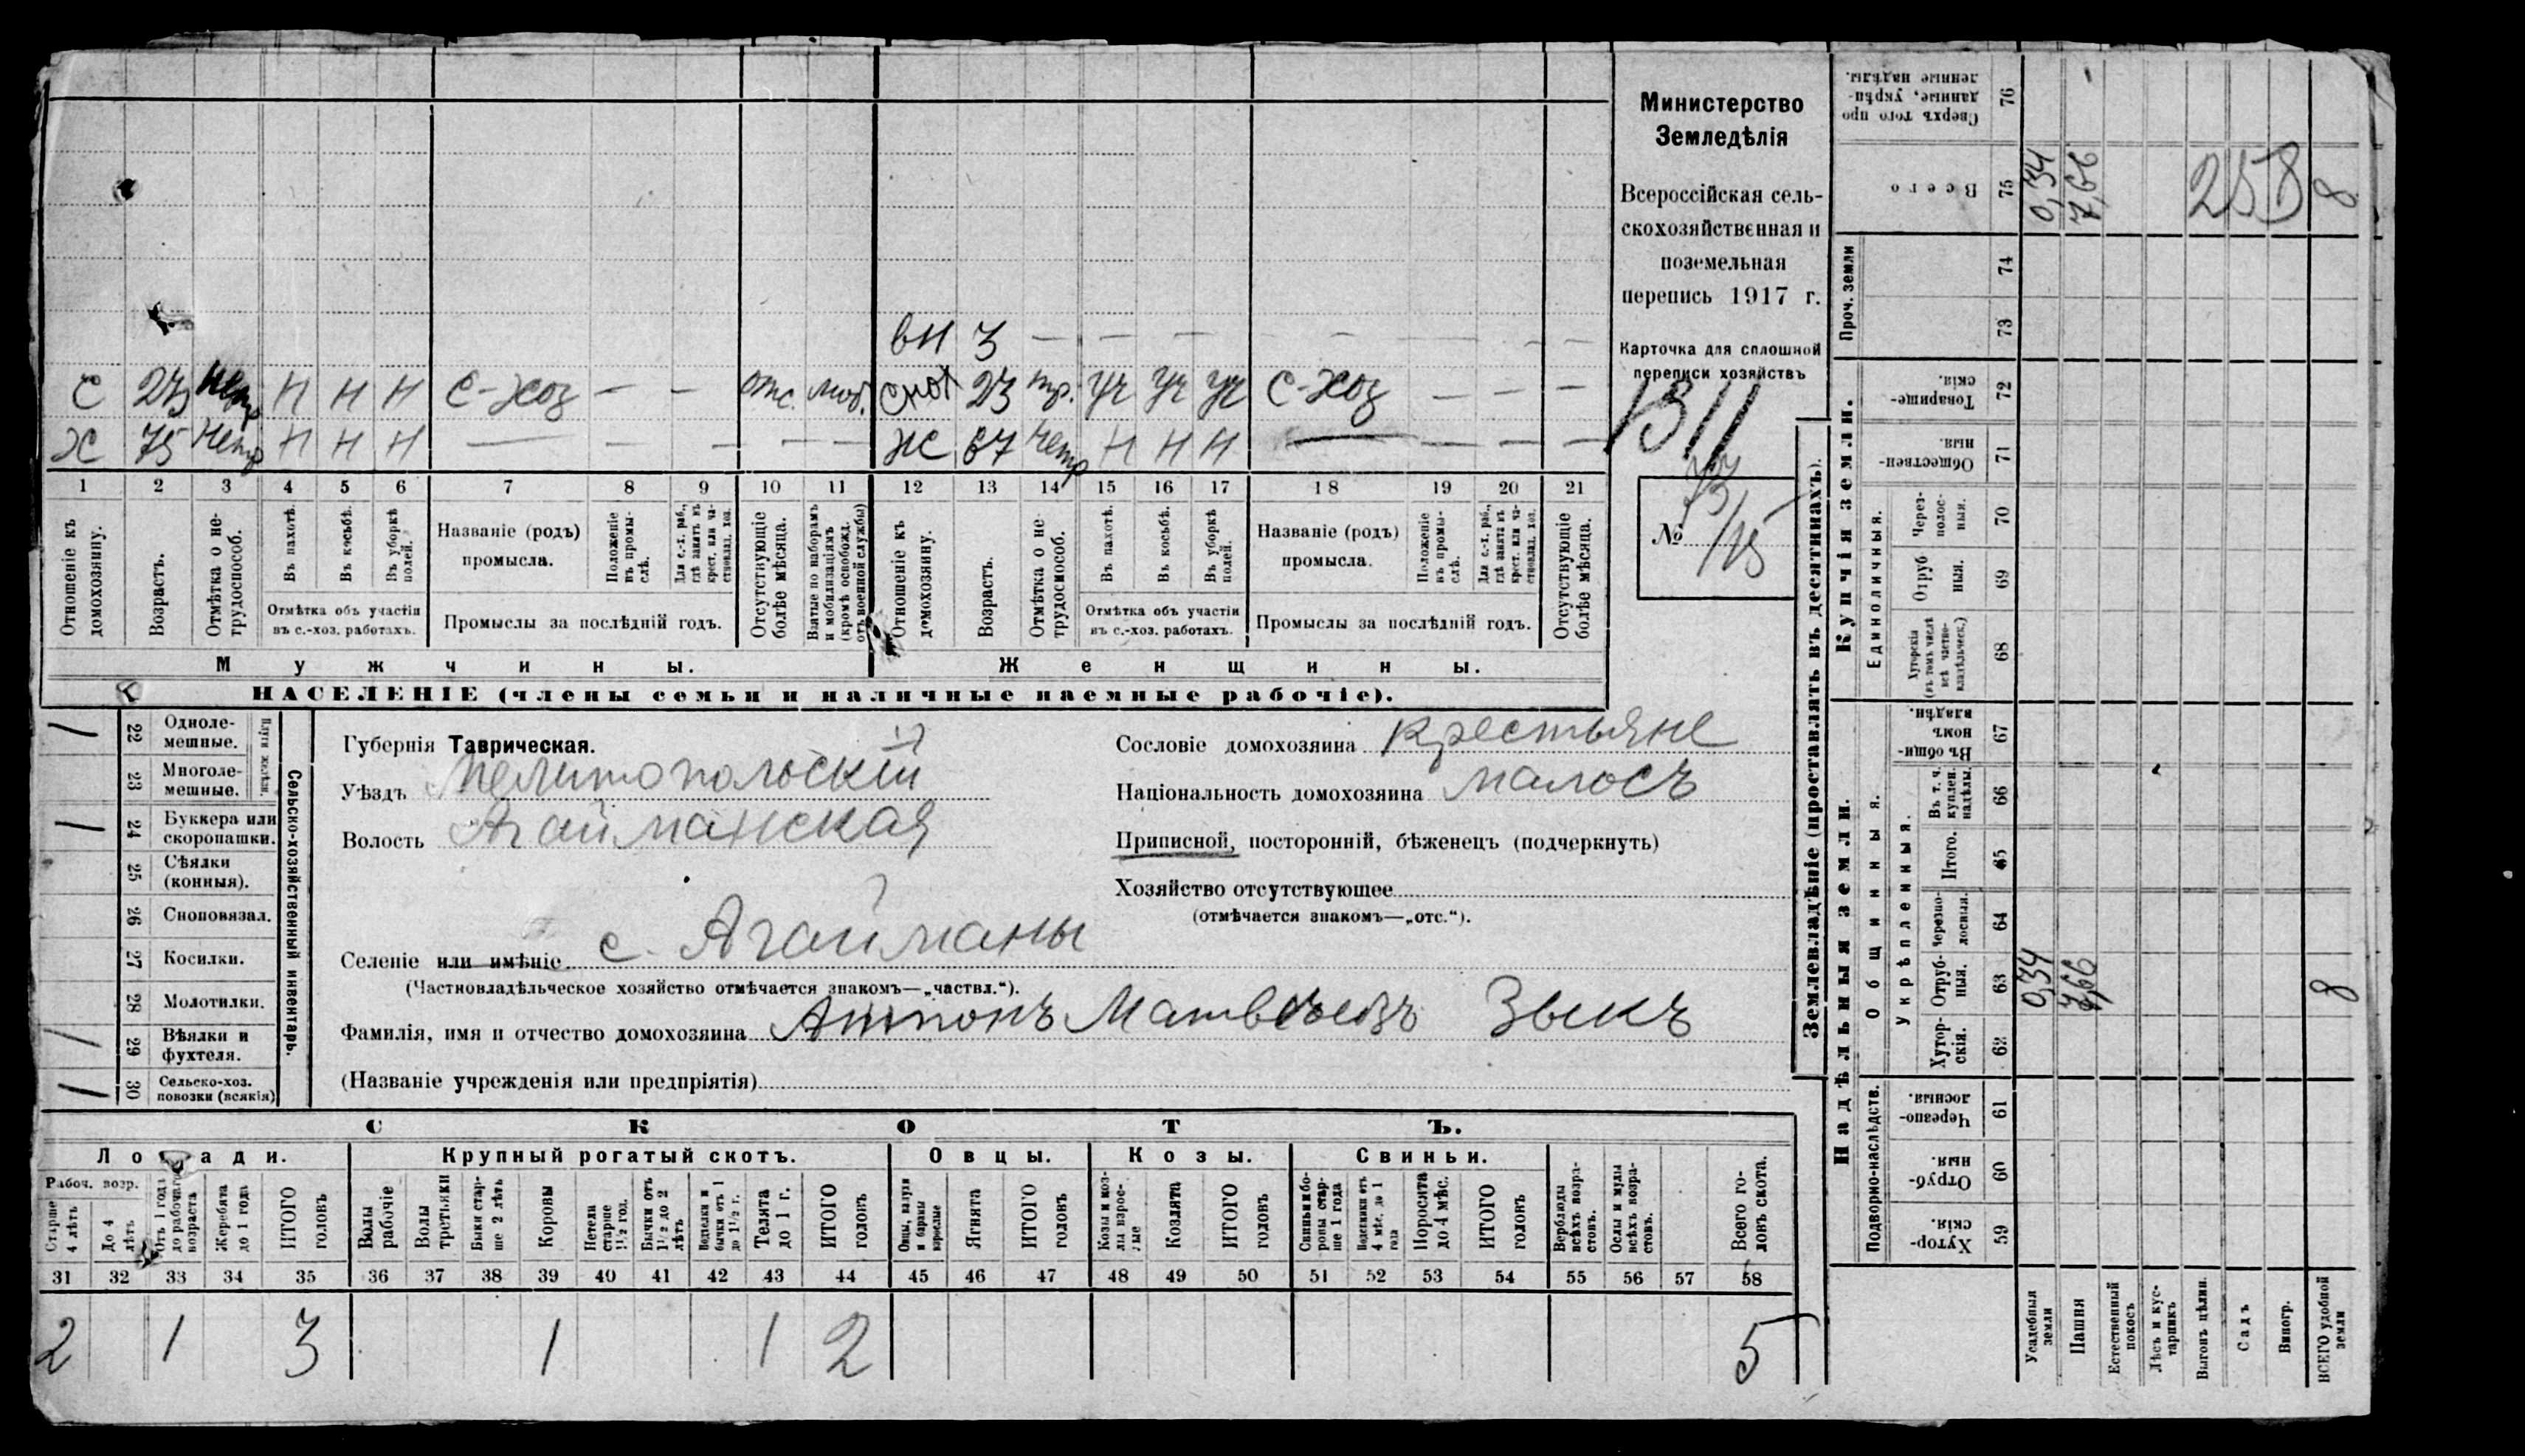 вн 3 — — — — — — — —
С 23 нетр Н Н Н С-хоз — — отс. моб. снох 23 тр. уч уч уч С-хоз — — —
Х 75 нетр Н Н Н — — — — — Ж 67 нетр Н Н Н — — — —
1 2 3 4 5 6 7 8 9 10 11 12 13 14 15 16 17 18 19 20 21
Отношеніе къ домохозяину.
Возрастъ.
Отмѣтка о не-трудоспособ.
Въ пахотѣ.
Въ косьбѣ.
Въ уборкѣ полей.
Отмѣтка объ участіи въ с.-хоз. работахъ.
Названіе (родъ) промысла.
Положеніе въ промы-слѣ.
Для с.-х. раб., гдѣ занятъ въ крест. или ча-стновлад. хоз.
Промыслы за послѣдній годъ.
Отсутствующіе болѣе мѣсяца.
Взятые по наборамъ и мобилизаціямъ (кромѣ освобожд. отъ военной службы)
Отношеніе къ домохозяину.
Возрастъ.
Отмѣтка о не-трудоспособ.
Въ пахотѣ.
Въ косьбѣ.
Въ уборкѣ полей.
Отмѣтка объ участіи въ с.-хоз. работахъ.
Названіе (родъ) промысла.
Положеніе въ промы-слѣ.
Для с.-х. раб., гдѣ занята въ крест. или ча-стновлад. хоз.
Промыслы за послѣдній годъ.
Отсутствующіе болѣе мѣсяца.
Мужчины. Женщины.
НАСЕЛЕНІЕ (члены семьи и наличные наемные рабочіе).
Министерство
Земледѣлія
Всероссійская сель-
скохозяйственная и
поземельная
перепись 1917 г.
Карточка для сплошной
переписи хозяйствъ
1311
№ 73/15
Сельско-хозяйственный инвентарь.
Плуги желѣзн.
22 Одноле-мешные. 1
23 Многоле-мешные.
24 Буккера или скоропашки. 1
25 Сѣялки (конныя).
26 Сноповязал.
27 Косилки.
28 Молотилки.
29 Вѣялки и фухтеля. 1
30 Сельско-хоз. повозки (всякія) 1
Губернія Таврическая.
Уѣздъ Мелитопольскій
Волость Агайманская
Селеніе или имѣніе с. Агайманы
(Частновладѣльческое хозяйство отмѣчается знакомъ—„частвл.“).
Фамилія, имя и отчество домохозяина Антонъ Матвѣевъ Зыкъ
(Названіе учрежденія или предпріятія)
Сословіе домохозяина крестьяне
Національность домохозяина малосъ
Приписной, посторонній, бѣженецъ (подчеркнуть)
Хозяйство отсутствующее
(отмѣчается знакомъ—„отс.“).
СКОТЪ.
Лошади. Крупный рогатый скотъ. Овцы. Козы. Свиньи.
Рабоч. возр.
Старше 4 лѣтъ
До 4 лѣтъ
Отъ 1 года до рабочаго возраста
Жеребята до 1 года
ИТОГО головъ
Волы рабочіе
Волы третьяки
Быки стар-ше 2 лѣтъ
Коровы
Нетели старше 1½ год.
Бычки отъ 1½ до 2 лѣтъ
Телки и бычки отъ 1 до 1½ г.
Телята до 1 г.
ИТОГО головъ
Овцы, валухи и бараны взрослые
Ягнята
ИТОГО головъ
Козы и коз-лы взрос-лые
Козлята
ИТОГО головъ
Свиньи и бо-ровы стар-ше 1 года
Подсвинки отъ 4 мѣс. до 1 года
Поросята до 4 мѣс.
ИТОГО головъ
Верблюды всѣхъ возра-стовъ.
Ослы и мулы всѣхъ возра-стовъ.
Всего го-ловъ скота.
31 32 33 34 35 36 37 38 39 40 41 42 43 44 45 46 47 48 49 50 51 52 53 54 55 56 57 58
2 1 3 1 1 2 5
Землевладѣніе (проставлять въ десятинахъ).
Купчія земли.
Надѣльныя земли.
Проч. земли
Сверхъ того про данные, укрѣп-ленные надѣлы. 76
Всего 75 0,34 7,66 258 8
74
73
Товарище-скія. 72
Обществен-ныя. 71
Единоличныя.
Через-полос-ныя. 70
Отруб ныя. 69
Хуторскія (въ томъ числѣ всѣ частно-владѣльческ.) 68
Общинныя.
Въ общи-номъ владѣн. 67
Укрѣпленныя.
Въ т. ч. куплен. надѣлы. 66
Итого. 65
Черезпо-лосныя. 64
Отруб-ныя. 63 0,34 7,66 8
Хутор-скія. 62
Подворно-наслѣдств.
Черезпо-лосныя. 61
Отруб-ныя. 60
Хутор-скія. 59
Усадебныя земли
Пашня
Естественный покосъ
Лѣсъ и кус-тарникъ
Выгонъ цѣлин.
Садъ
Виногр.
ВСЕГО удобной земли